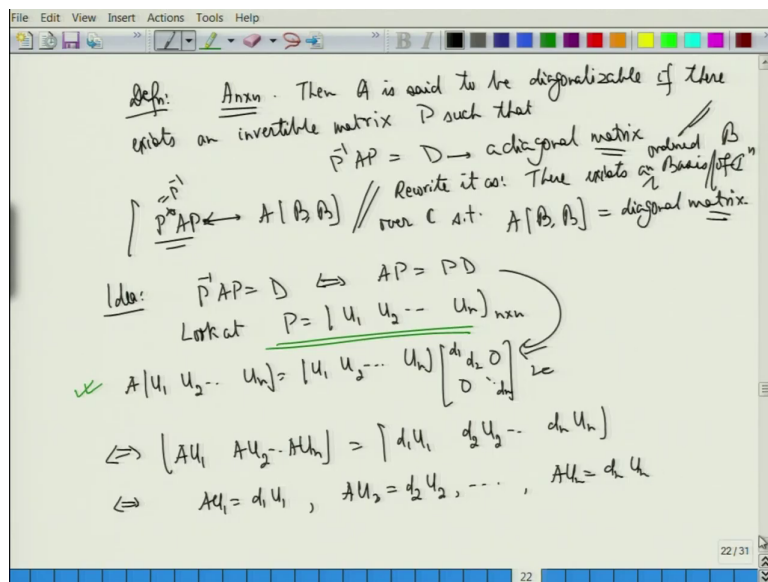 File Edit View Insert Actions Tools Help
Defn: Anxn. Then A is said to be diagonalizable if there
exists an invertible matrix P such that
P⁻¹AP = D → a diagonal matrix
P*AP ↔ A[B, B] // Rewrite it as: There exists an ordered Basis B of Cⁿ
= P⁻¹
over C s.t. A[B, B] = diagonal matrix.
Idea: P⁻¹AP = D ⇔ AP = PD
Look at P = [U₁ U₂ -- Uₙ]nxn
A[U₁ U₂ -- Uₙ] = [U₁ U₂ --- Uₙ] [d₁ d₂ 0 0 ⋱ dₙ]
⇔ [AU₁ AU₂ -- AUₙ] = [d₁U₁ d₂U₂ -- dₙUₙ]
⇔ AU₁ = d₁U₁, AU₂ = d₂U₂, ----, AUₙ = dₙUₙ
22/31
22